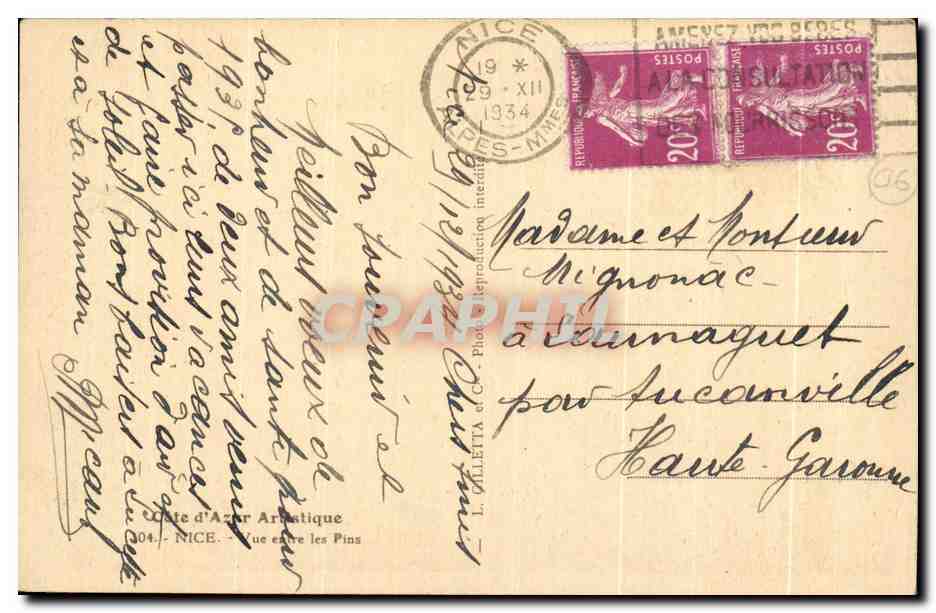 NICE
19 *
29 - XII
1934
ALPES-MMES
AMENEZ VOS BEBES
A LA CONSULTATION
DE NOURRISSONS
POSTES
REPUBLIQUE FRANÇAISE
20c
POSTES
REPUBLIQUE FRANÇAISE
20c
06
Nice 29/12/1934 Chers Amis
Bon Souvenir et
Meilleurs voeux de
bonheur et de santé pour
193 de deux amis venus
passer ici leurs vacances
et faire provision d'air
de Soleil. Bons baisers à
et à sa maman
L. GILLETTA et Cie - Photo Reproduction interdite
Madame et Monsieur
Mignonac
à Launaguet
par Lucanville
Haute-Garonne
Côte d'Azur Artistique
304. - NICE. - Vue entre les Pins
CRAPHIL